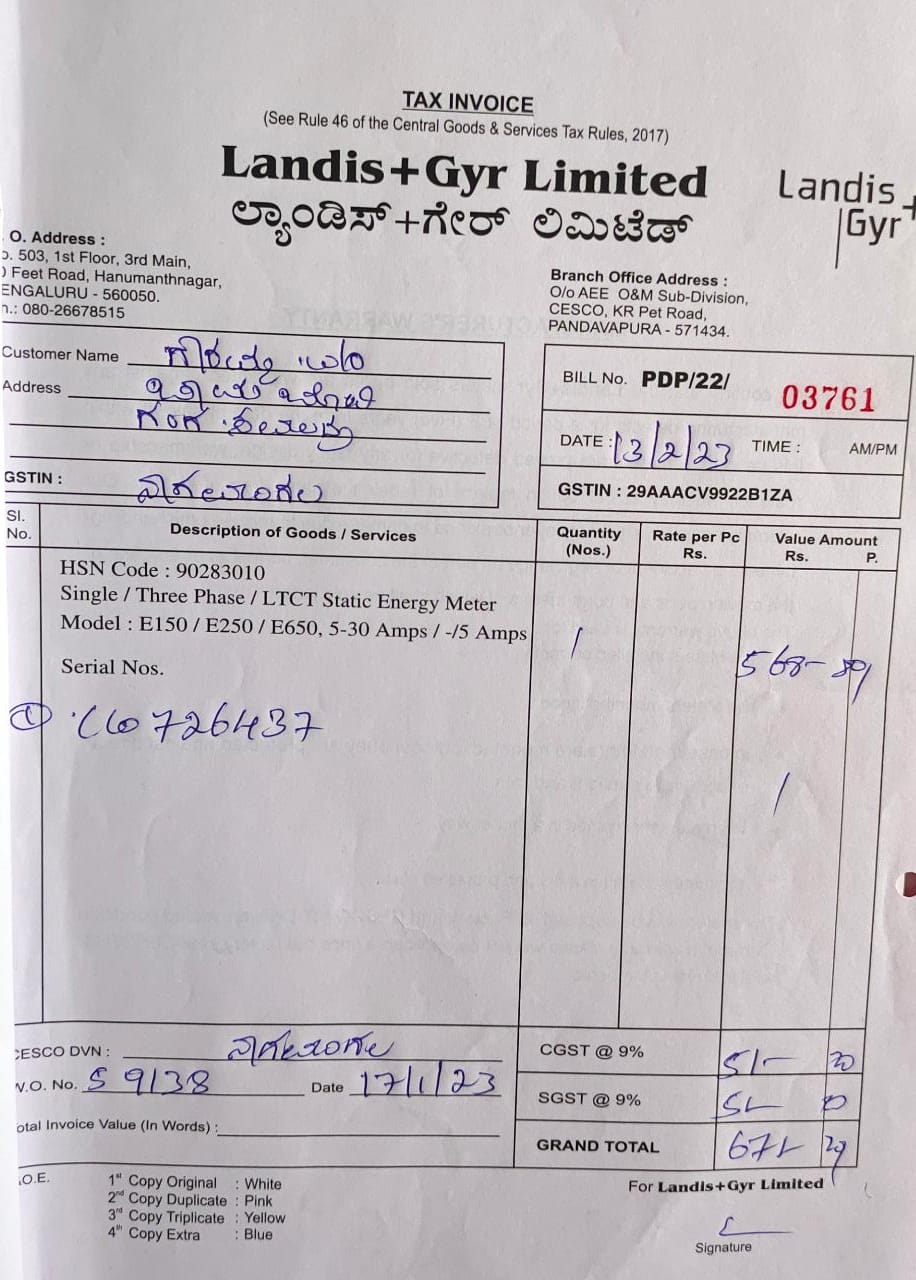 TAX INVOICE
(See Rule 46 of the Central Goods & Services Tax Rules, 2017)
Landis+Gyr Limited
ಲ್ಯಾಂಡಿಸ್+ಗೇರ್ ಲಿಮಿಟೆಡ್
Landis+
Gyr
O. Address :
503, 1st Floor, 3rd Main,
Feet Road, Hanumanthnagar,
ENGALURU - 560050.
n.: 080-26678515
Branch Office Address :
O/o AEE O&M Sub-Division,
CESCO, KR Pet Road,
PANDAVAPURA - 571434.
Customer Name
Address
GSTIN :
BILL No. PDP/22/ 03761
DATE : 13/2/23 TIME : AM/PM
GSTIN : 29AAACV9922B1ZA
Sl. No. Description of Goods / Services Quantity (Nos.) Rate per Pc Rs. Value Amount Rs. P.
HSN Code : 90283010
Single / Three Phase / LTCT Static Energy Meter
Model : E150 / E250 / E650, 5-30 Amps / -/5 Amps 1
Serial Nos. 568-
① 726437
CESCO DVN :
W.O. No. 59138 Date 17/1/23
otal Invoice Value (In Words) :
CGST @ 9% 51- 20
SGST @ 9%
GRAND TOTAL 671 29
.O.E.
1st Copy Original : White
2nd Copy Duplicate : Pink
3rd Copy Triplicate : Yellow
4th Copy Extra : Blue
For Landis+Gyr Limited
Signature